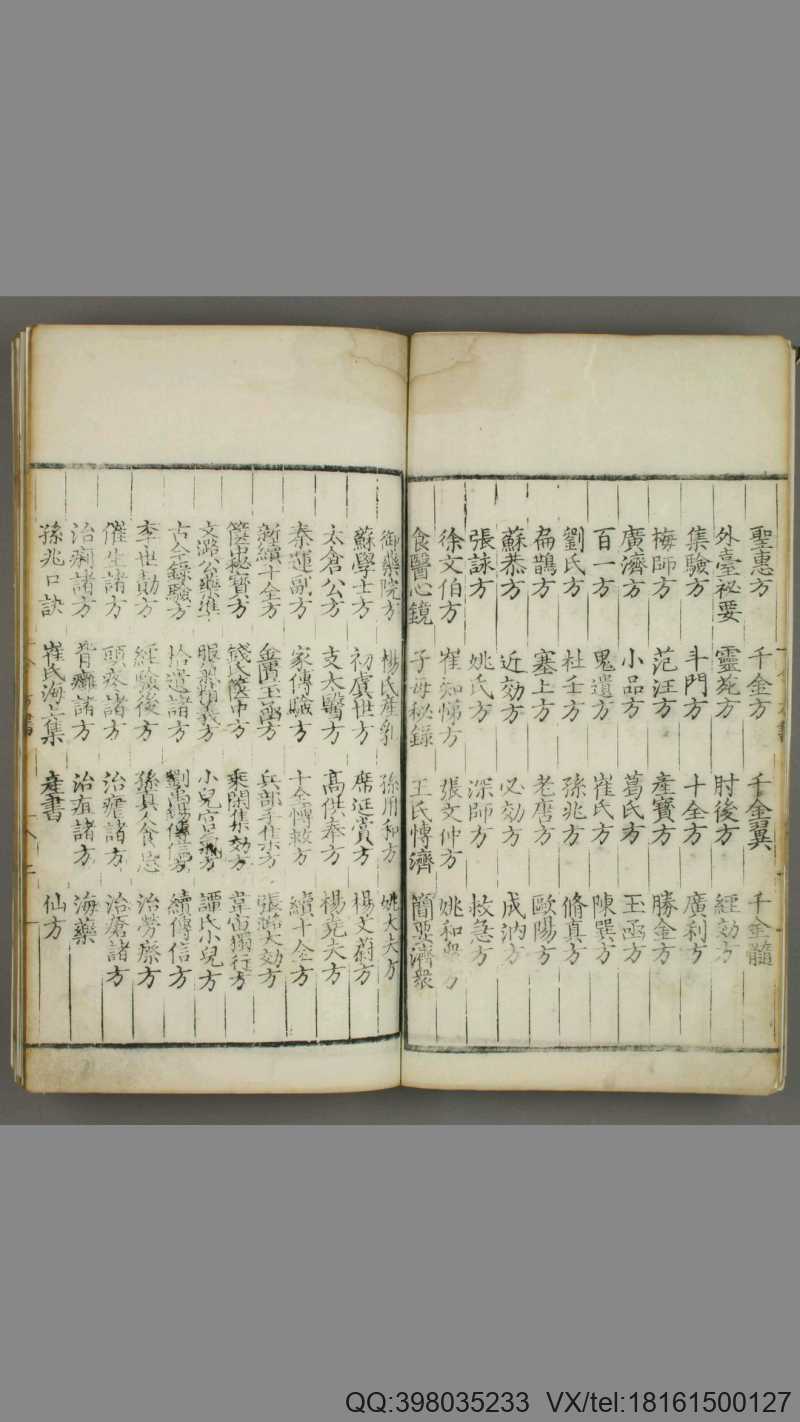 聖惠方 千金方 千金翼 千金髓
外臺祕要 靈苑方 肘後方 經効方
集驗方 斗門方 十全方 廣利方
梅師方 范汪方 產寶方 勝金方
廣濟方 小品方 葛氏方 玉函方
百一方 鬼遺方 崔氏方 陳巽方
劉氏方 杜壬方 孫兆方 脩真方
扁鵲方 塞上方 老唐方 歐陽方
蘇恭方 近効方 必効方 成訥方
張詠方 姚氏方 深師方 救急方
徐文伯方 崔知悌方 張文仲方 姚和衆方
食醫心鏡 子母祕録 王氏愽濟 簡要濟衆
御藥院方 楊氏產乳 孫用和方 姚大夫方
蘇學士方 初虞世方 席延賞方 楊文蔚方
太倉公方 支太醫方 高供奉方 楊堯夫方
秦運副方 家傳驗方 十全愽救方 續十全方
新續十全方 金匱玉函方 兵部手集方 張潞大効方
篋中祕寶方 錢氏篋中方 乘閑集効方 韋宙獨行方
文潞公藥準 服氣精義方 小兒宮氣方 譚氏小兒方
古今録驗方 拾遺諸方 劉禹錫傳信方 續傳信方
李世勣方 經驗後方 孫真人食忌 治勞瘵方
催生諸方 頭疼諸方 治瘧諸方 治瘡諸方
治痢諸方 治疽諸方 海藥
孫兆口訣 崔氏海上集 產書 仙方
QQ:398035233 VX/tel:18161500127